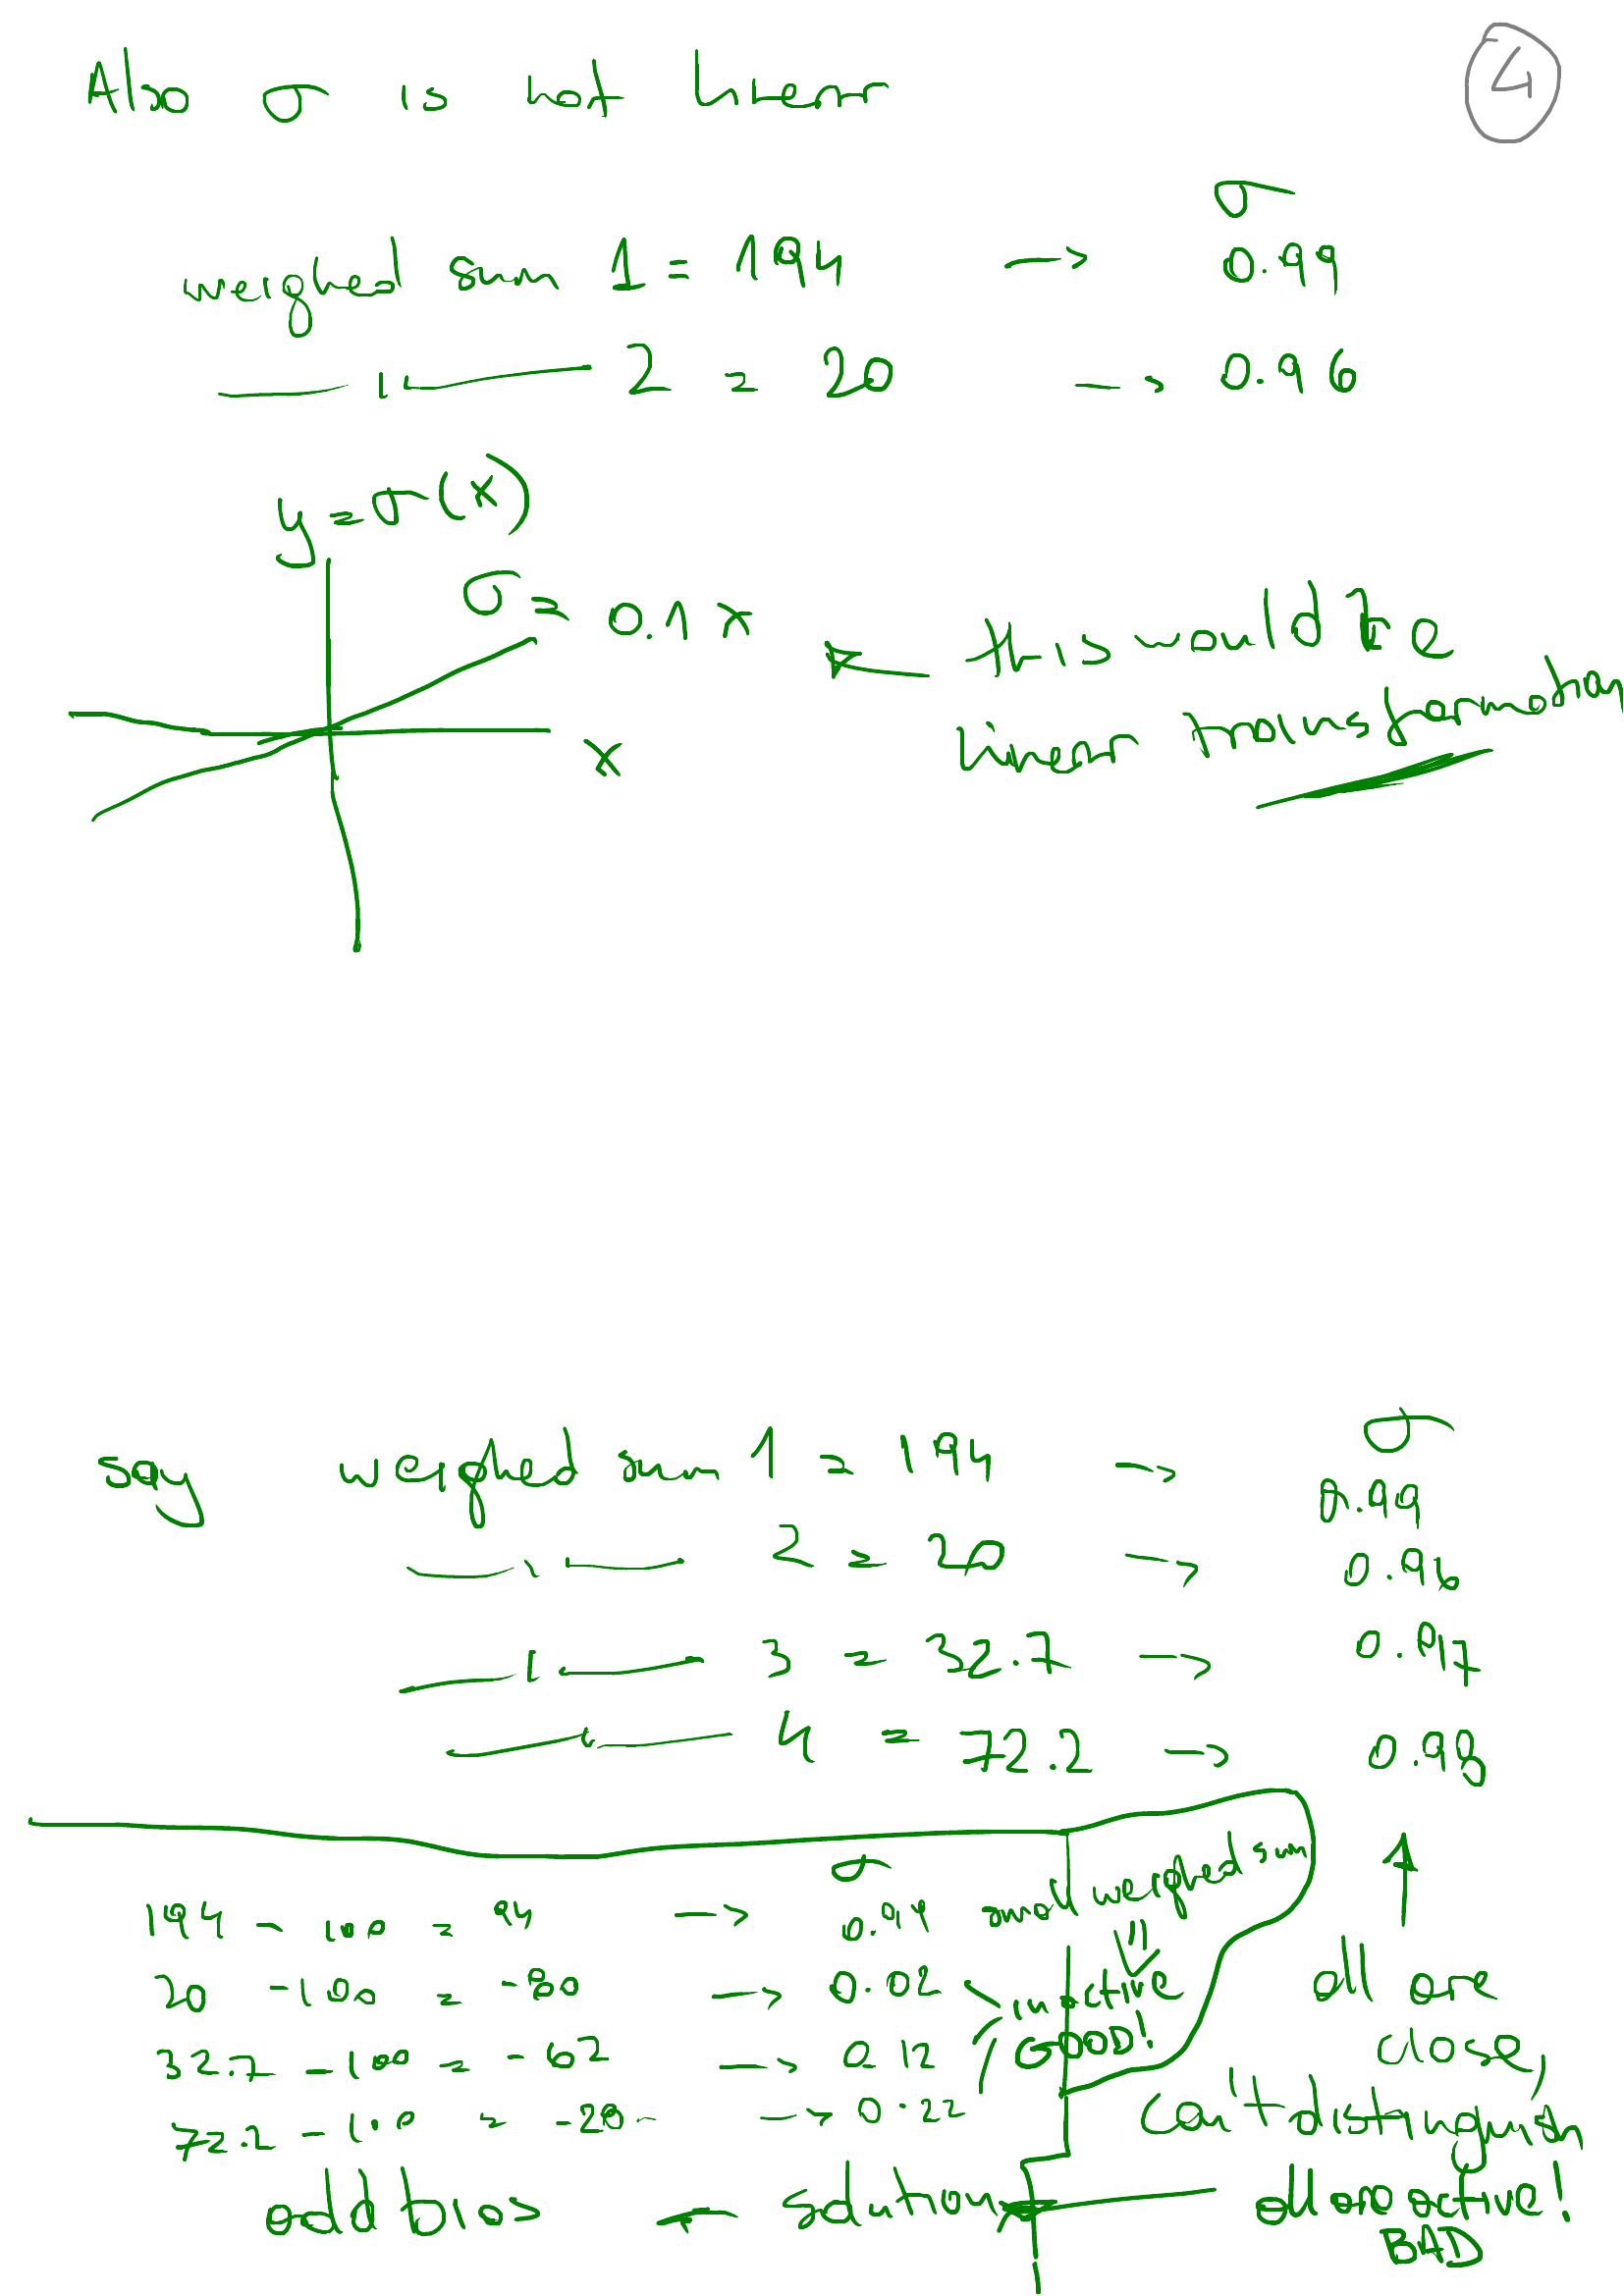 Also σ is not linear
4
σ
weighed sum 1 = 194 -> 0.99
—— " —— 2 = 20 -> 0.96
y = σ(x)
σ = 0.1x
this would be
linear transformation
x
σ
say weighed sum 1 = 194 -> 0.99
—— " —— 2 = 20 -> 0.96
—— " —— 3 = 32.7 -> 0.97
—— " —— 4 = 72.2 -> 0.98
σ
194 - 100 = 94 -> 0.94
20 - 100 = -80 -> 0.02
32.7 - 100 = -62 -> 0.12
72.2 - 100 = -28 -> 0.22
small weighed sum
inactive
GOOD!
all are
close,
can't distinguish
all are active!
BAD
solution
add bias